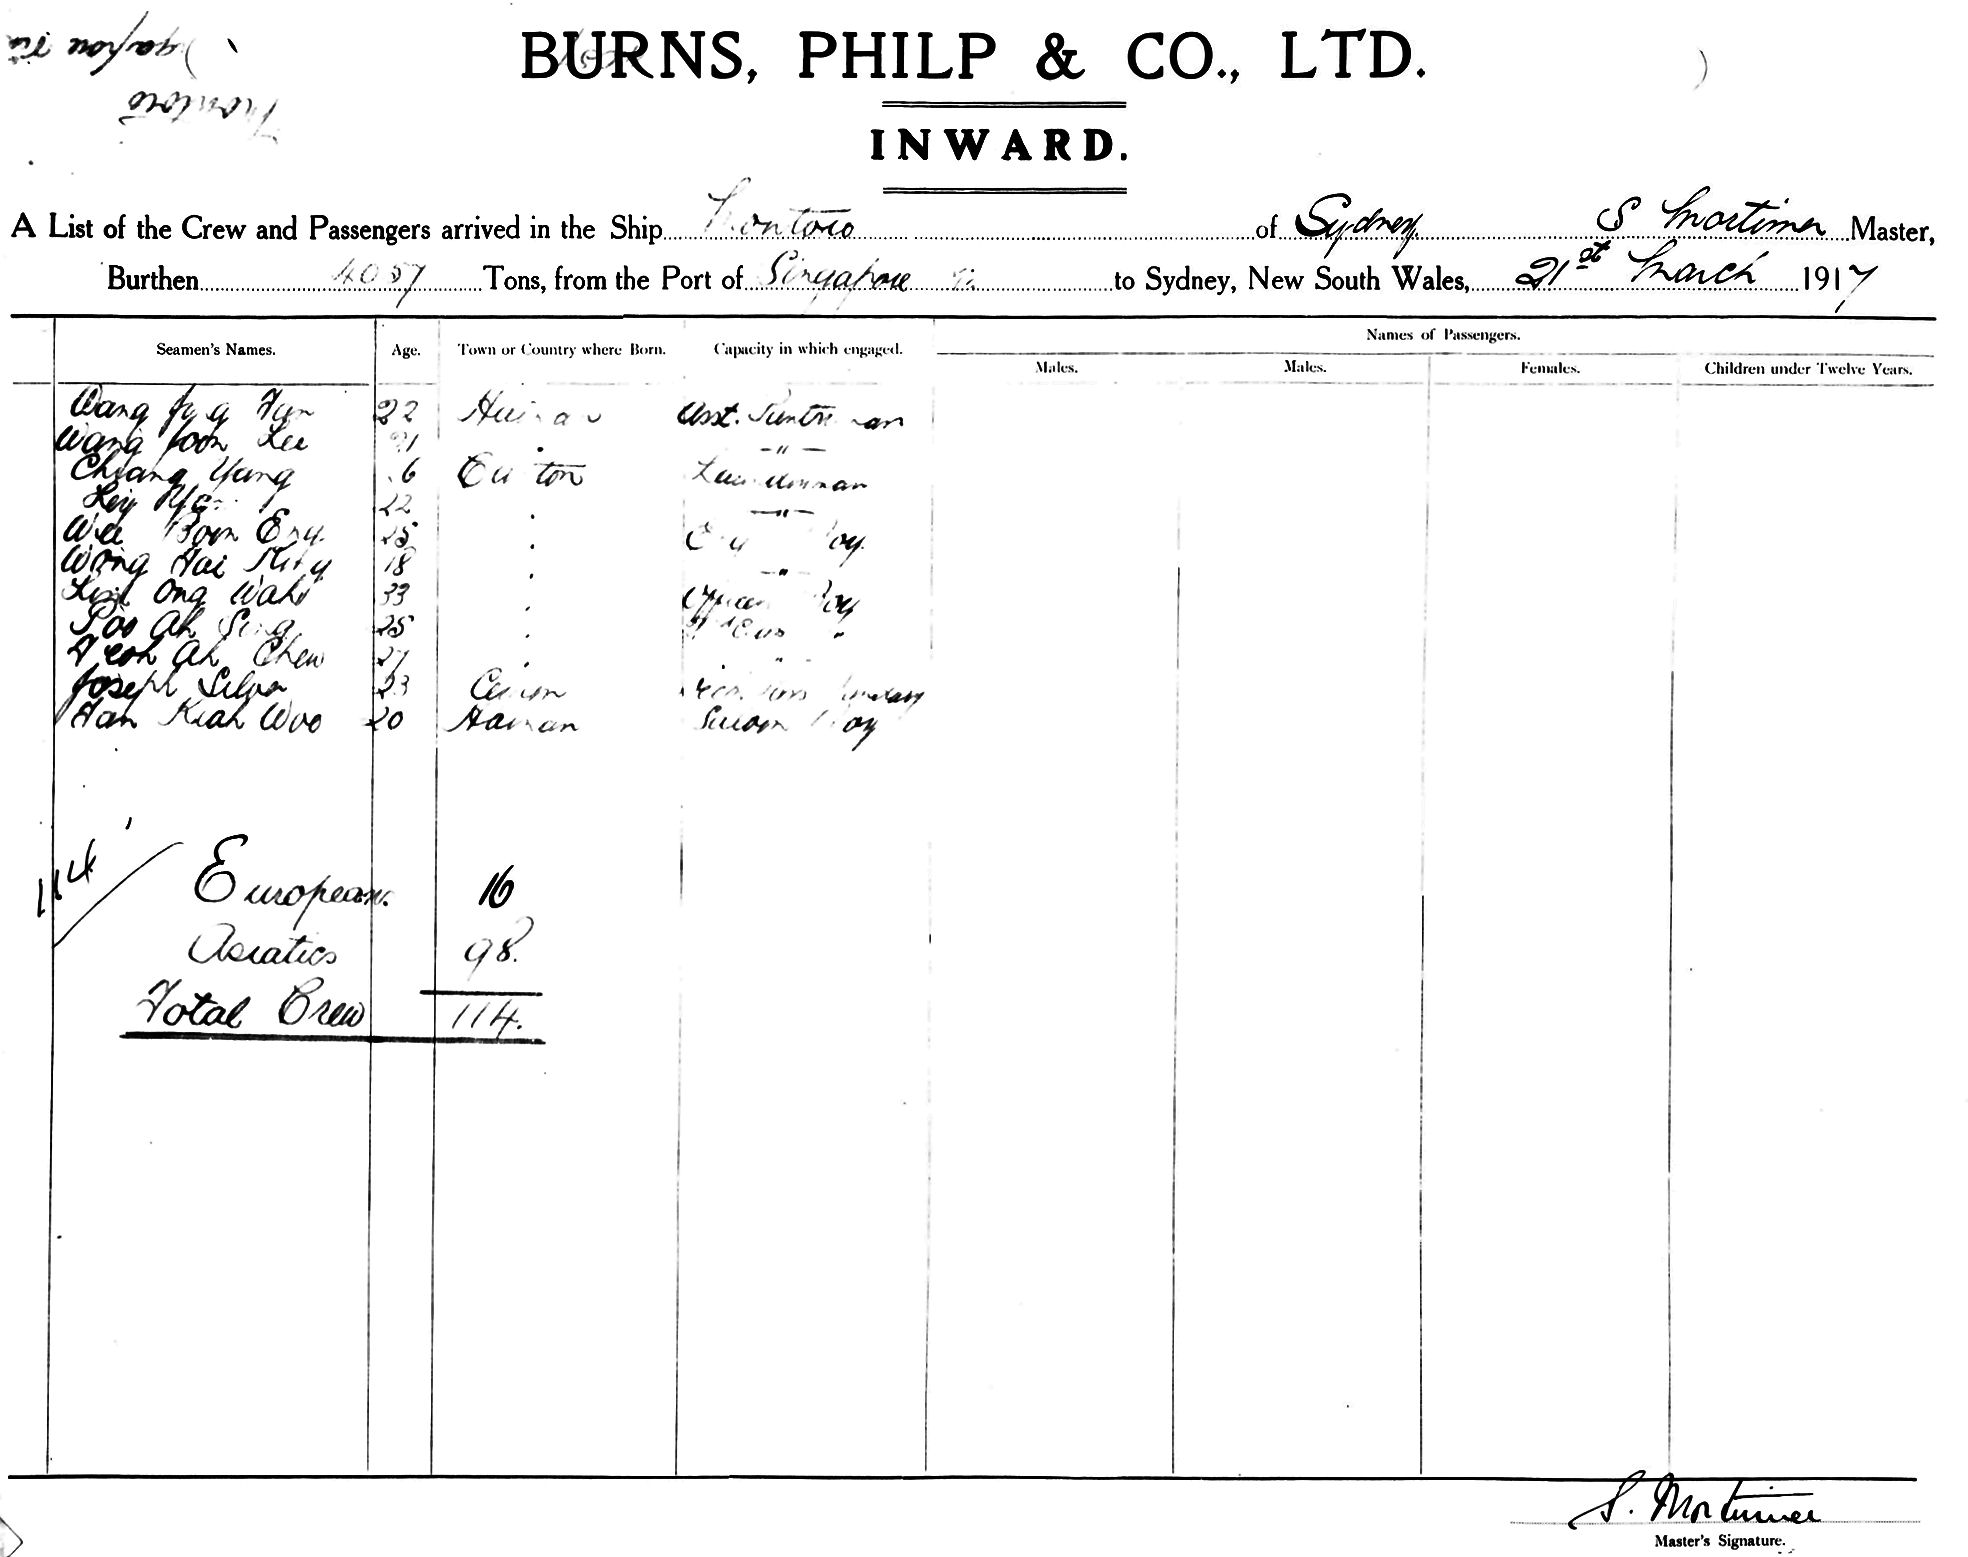 BURNS, PHILP & CO., LTD.
INWARD.
A List of the Crew and Passengers arrived in the Ship Montoro of Sydney. S Mortimer Master,
Burthen 4057 Tons, from the Port of Singapore to Sydney, New South Wales, 21st March 1917
Names of Passengers.
Seamen's Names. Age. Town or Country where Born. Capacity in which engaged. Males. Males. Females. Children under Twelve Years.
Wang Fun 22 Hainan Asst.
Wang Joon Lee "
Chiang Yung Canton Laundryman
22 "
Wee Boon Eng 25 Boy
Wong Hai 18 "
Ong Wah 33 Boy
Poo Ah Sing 25 "
Ah Chew 27
Joseph Silva 23
Han Kiah Woo 20 Hainan Saloon Boy
114
European. 16
Asiatics 98.
Total Crew 114.
S. Mortimer
Master's Signature.